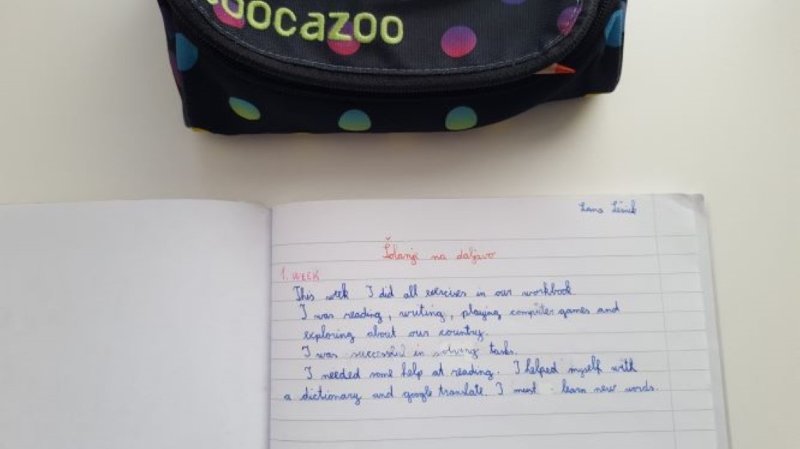 oocazoo
Šolanje na daljavo
1. WEEK
This week I did all exercises in our workbook
I was reading, writing, playing computer games and
exploring about our country.
I was successful in solving tasks.
I needed some help at reading. I helped myself with
a dictionary and google translate. I must : learn new words.